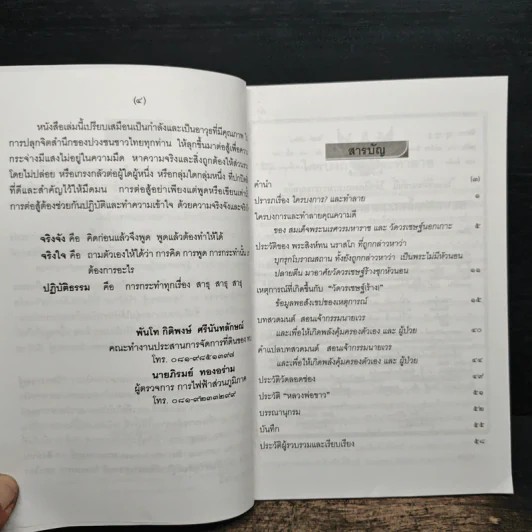 (๔)
หนังสือเล่มนี้เปรียบเสมือนเป็นกำลังและเป็นอาวุธที่มีคุณภาพ
การปลุกจิตสำนึกของปวงชนชาวไทยทุกท่าน ให้ลุกขึ้นมาต่อสู้เพื่อความ
กระจ่างมีแสงไม่อยู่ในความมืด หาความจริงและสิ่งถูกต้องให้ส่วนรวม
โดยไม่ปล่อย หรือเกรงกลัวต่อผู้ใดผู้หนึ่ง หรือกลุ่มใดกลุ่มหนึ่ง ที่ปกปิด
ที่ดีและสำคัญไว้ให้มืดมน การต่อสู้อย่าเพียงแต่พูดหรือเขียนเท่านั้น
การต่อสู้ต้องช่วยกันปฏิบัติและทำความเข้าใจ ด้วยความจริงจังและจริงใจ
จริงจัง คือ คิดก่อนแล้วจึงพูด พูดแล้วต้องทำให้ได้
จริงใจ คือ ถามตัวเองให้ได้ว่า การคิด การพูด การกระทำนั้น
ต้องการอะไร
ปฏิบัติธรรม คือ การกระทำทุกเรื่อง สาธุ สาธุ สาธุ
พันโท กิติพงษ์ ศรีนันทลักษณ์
คณะทำงานประสานการจัดการที่ดินของ
โทร. ๐๘๑-๙๘๕๑๓๙๗
นายภิรมย์ ทองอร่าม
ผู้ตรวจการ การไฟฟ้าส่วนภูมิภาค
โทร. ๐๘๑-๙๒๓๓๒๙๙
สารบัญ
คำนำ (๓)
ปรารภเรื่อง ใครบงการ? และทำลาย ๑
ใครบงการและทำลายคุณความดี
ของ สมเด็จพระนเรศวรมหาราช และ วัดวรเชษฐ์นอกเกาะ ๕
ประวัติของ พระสิงห์ทน นราสโภ ที่ถูกกล่าวหาว่า
บุกรุกโบราณสถาน ทั้งยังถูกกล่าวหาว่า เป็นพระไม่มีหัวนอน
ปลายตีน มาอาศัยวัดวรเชษฐ์ร้างซุกหัวนอน ๑๑
เหตุการณ์ที่เกิดขึ้นกับ "วัดวรเชษฐ์(ร้าง)"
ข้อมูลพอสังเขปของเหตุการณ์ ๑๕
บทสวดมนต์ สอนเจ้ากรรมนายเวร
และเพื่อให้เกิดพลังคุ้มครองตัวเอง และ ผู้ป่วย ๔๐
คำแปลบทสวดมนต์ สอนเจ้ากรรมนายเวร
และเพื่อให้เกิดพลังคุ้มครองตัวเอง และ ผู้ป่วย ๔๔
ประวัติวัดลอดช่อง ๔๙
ประวัติ "หลวงพ่อขาว" ๕๑
บรรณานุกรม ๕๒
บันทึก ๕๕
ประวัติผู้รวบรวมและเรียบเรียง ๕๘